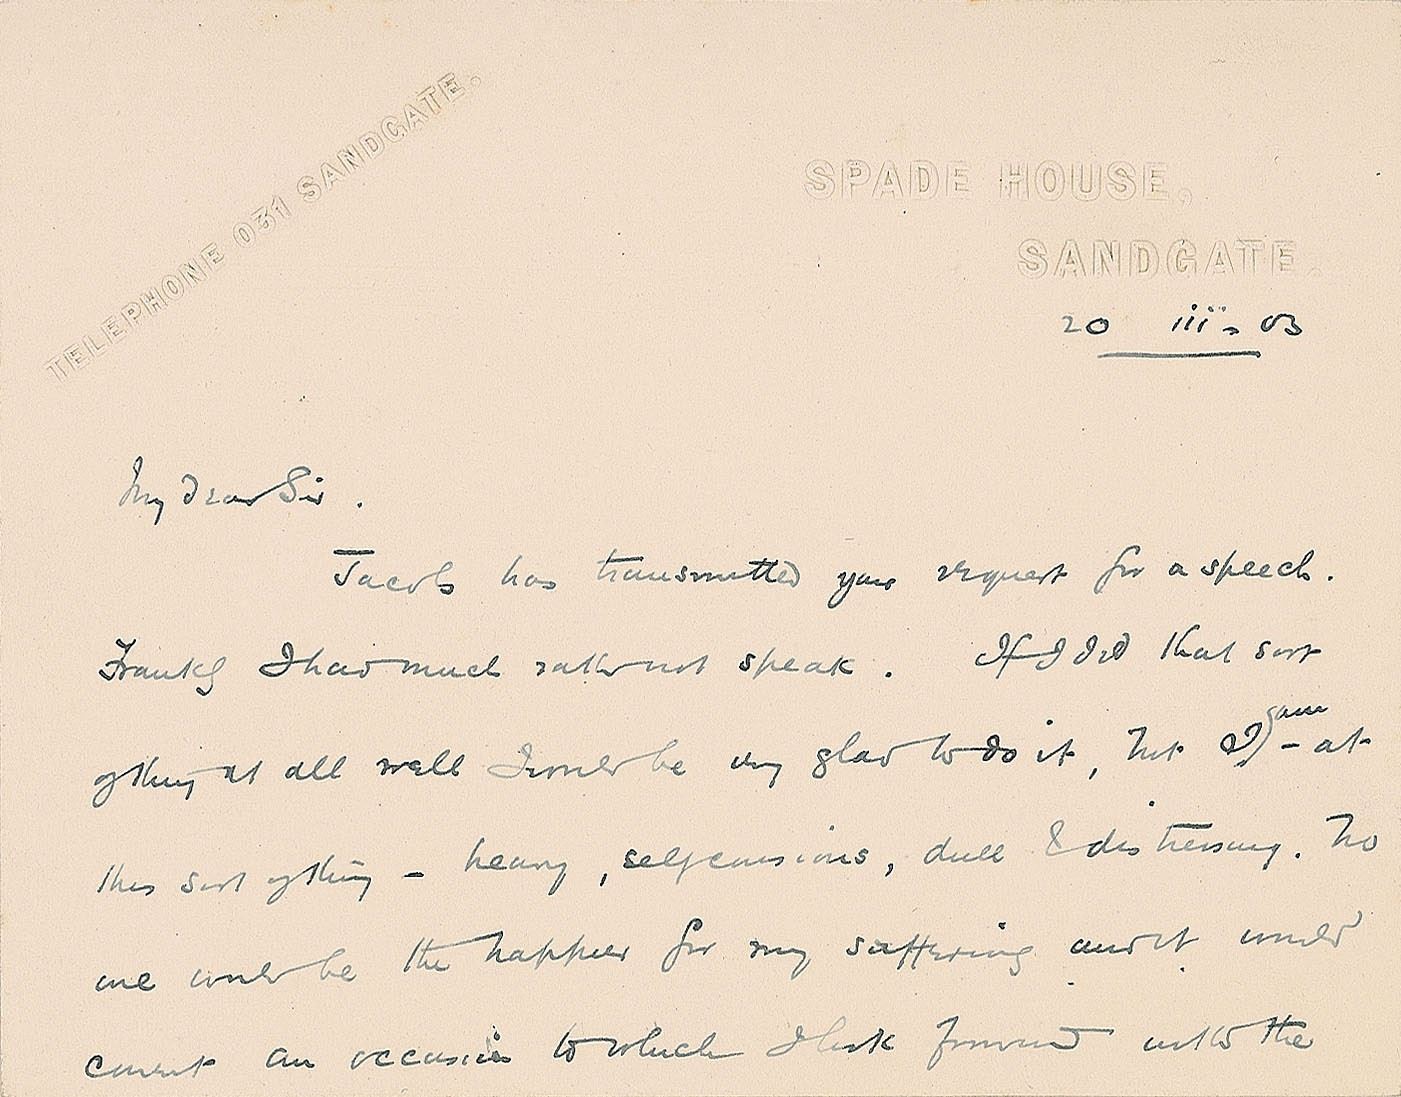 TELEPHONE 031 SANDGATE.
SPADE HOUSE,
SANDGATE.
20 iii - 03
My dear Sir.
Jacobs has transmitted your request for a speech.
Frankly I had much rather not speak. If I did that sort
of thing at all well I would be very glad to do it, but I am - at
this sort of thing - heavy, selfconscious, dull & distressing. No
one would be the happier for my suffering and it would
an occasion to which I look forward with the